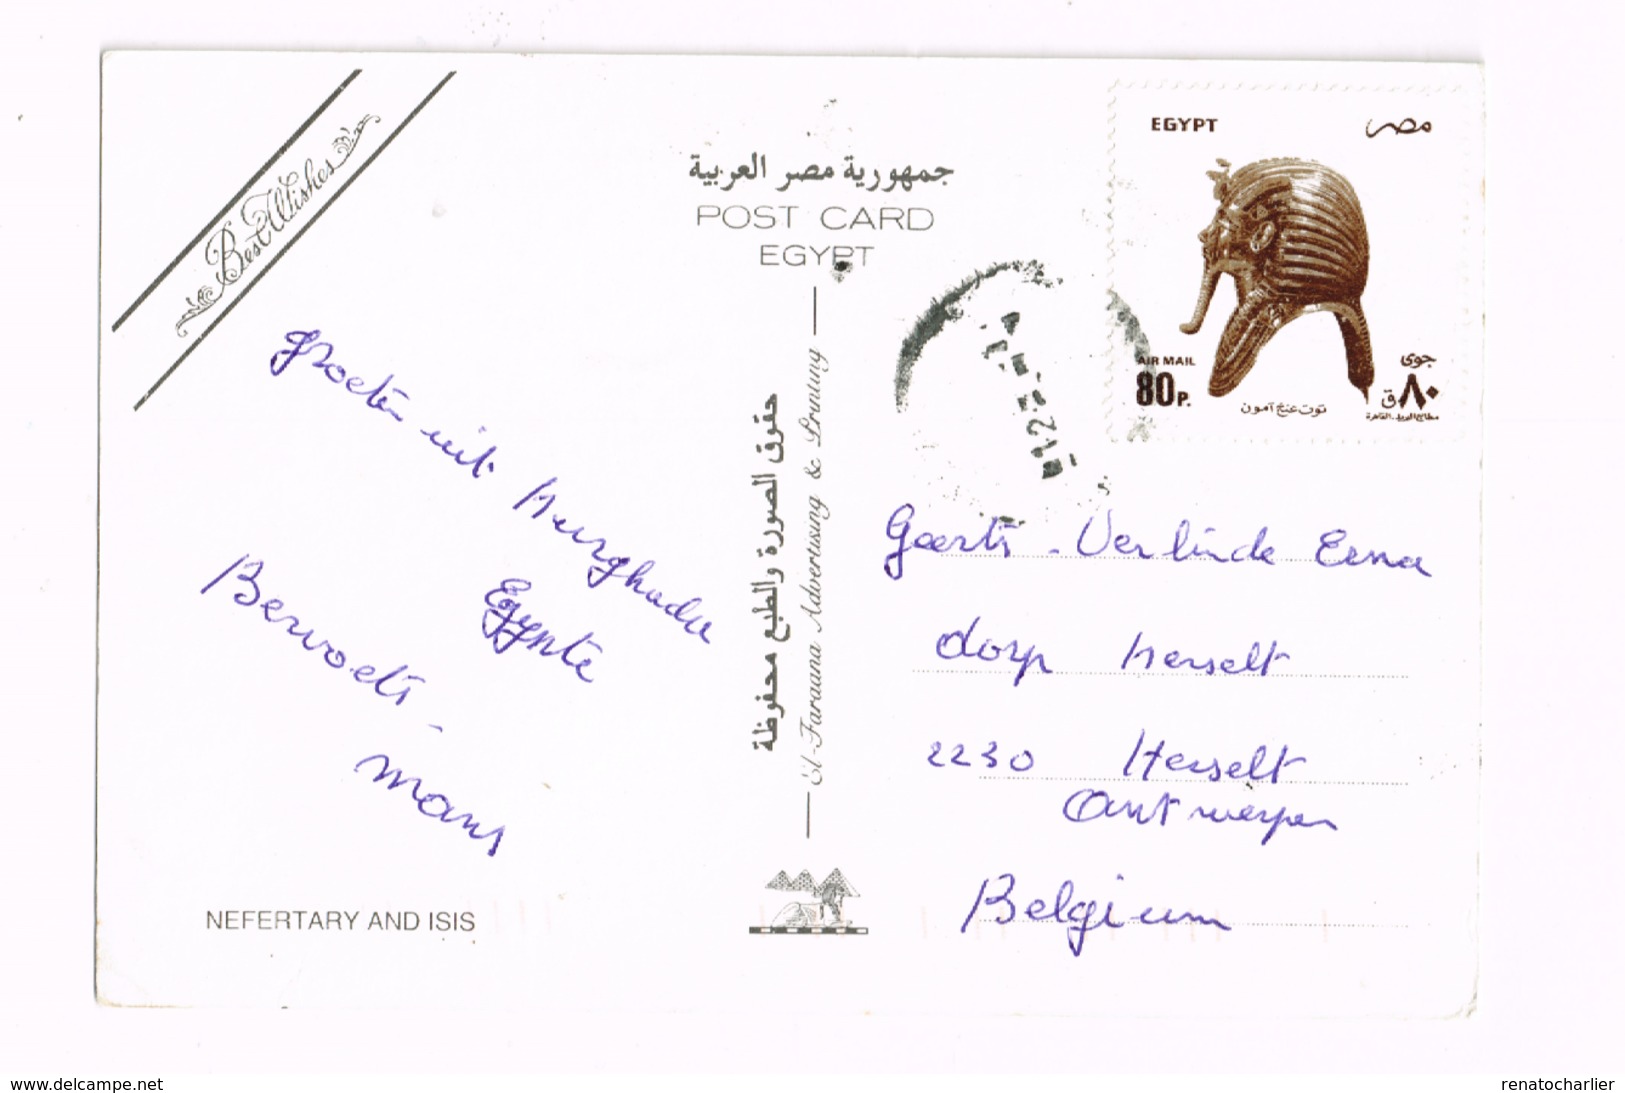 Best Wishes
groeten uit Hurghada
Egypte
Bervoets -
Mans
NEFERTARY AND ISIS
جمهورية مصر العربية
POST CARD
EGYPT
حقوق الصورة والطبع محفوظة
El-Faraana Advertising & Printing
EGYPT مصر
AIR MAIL جوى
80P. ٨٠ق
توت عنخ آمون
مطابع البريد-القاهرة
Geerts - Verlinde Erna
dorp Herselt
2230 Herselt
Antwerpen
Belgium
www.delcampe.net
renatocharlier